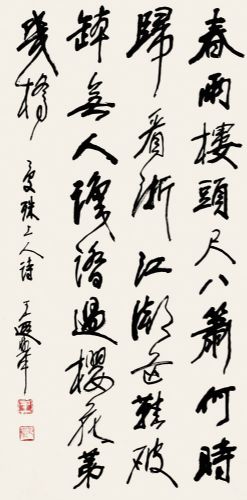 春雨樓頭尺八簫何時
歸看浙江潮芒鞋破
鉢無人識踏過櫻花第
幾橋
曼殊上人詩 王遐舉